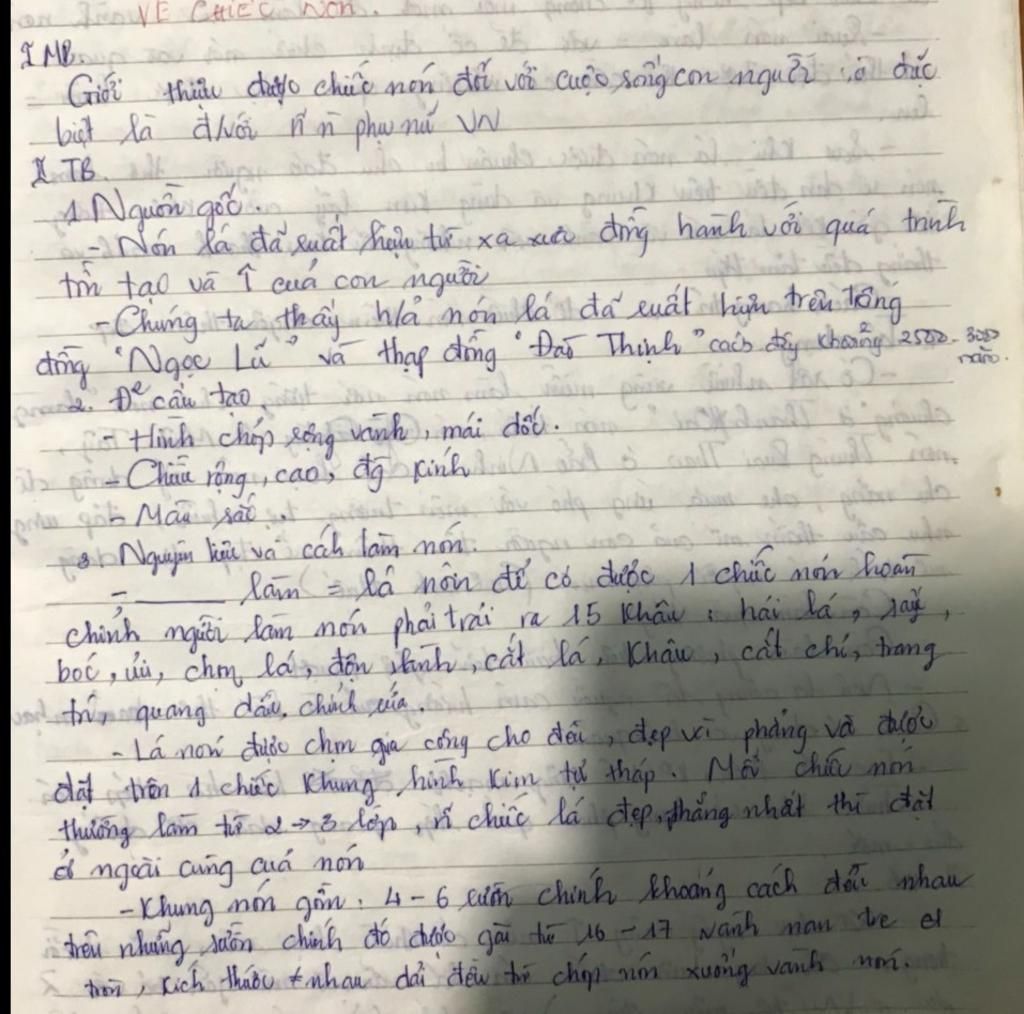 VỀ CHIẾC NÓN.
I MB
- Giới thiệu được chiếc nón đối với cuộc sống con người, đặc
biệt là đ/với n n phụ nữ VN
II TB.
1 Nguồn gốc.
- Nón lá đã xuất hiện từ xa xưa đồng hành với quá trình
tồn tạo và ↑ của con người
- Chúng ta thấy h/ả nón lá đã xuất hiện trên trống
đồng "Ngọc Lũ" và thạp đồng "Đào Thịnh" cách đây khoảng 2500 - 3000
năm.
2. Đ² cấu tạo
- Hình chóp rộng vành, mái dốc.
- Chiều rộng, cao, đg kính
- Màu sắc.
3 Nguyên liệu và cách làm nón.
- làm = lá nón để có được 1 chiếc nón hoàn
chỉnh người làm nón phải trải ra 15 khâu: hái lá, sấy,
bóc, ủi, chọn lá, độn vành, cắt lá, khâu, cắt chỉ, trang
trí, quang dầu,
- Lá non được chọn gia công cho đều, đẹp vì phẳng và được
đặt trên 1 chiếc khung hình kim tự tháp. Mỗi chiếc nón
thường làm từ 2 → 3 lớp, n chiếc lá đẹp, phẳng nhất thì đặt
ở ngoài cùng của nón
- Khung nón gồm: 4 - 6 sườn chính khoảng cách đều nhau
trên những sườn chính đó được gài từ 16 - 17 vành nan tre
tròn, kích thước ≠ nhau dải đều từ chóp nón xuống vành nón.